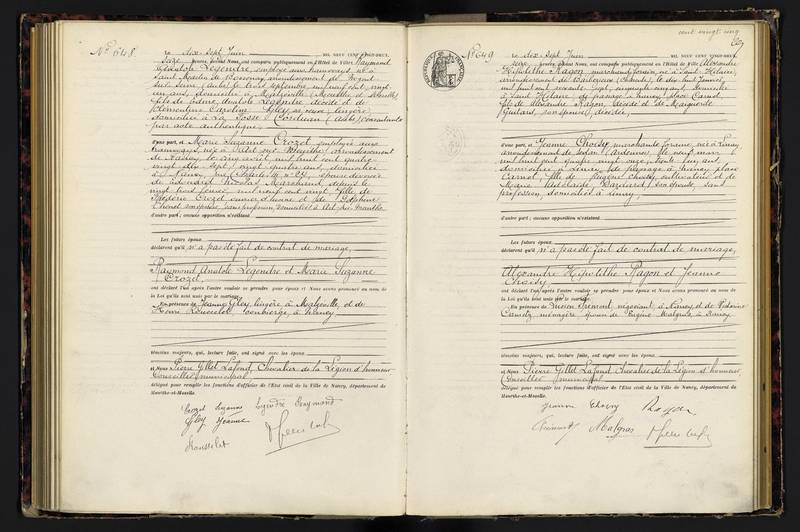 N° 648.
Le dix-sept Juin MIL NEUF CENT VINGT-DEUX,
seize heures, devant Nous, ont comparu publiquement en l'Hôtel de Ville: Raymond
Anatole Legendre, employé aux tramways, né à
Saint Martin de Bossenay, arrondissement de Nogent
sur Seine (Aube) le trois septembre mil neuf cent, vingt
un ans, domicilié à Malzéville (Meurthe et Moselle)
fils de Edme Anatole Legendre, décédé et de
Clémentine Gley, sa veuve, lingère,
domiciliée à La Fosse Corduan (Aube) consentante
par acte authentique,
d'une part, et Marie Suzanne Crozet employée aux
tramways, née à Art sur Meurthe, arrondissement
de Nancy, le cinq avril mil huit cent quatre
vingt dix sept, vingt quatre ans, domiciliée
à Nancy, épouse divorcée
de Nicolas Marchand, depuis le
mil neuf cent vingt, fille de
Frédéric Crozet et de Delphine
son épouse, sans profession, domiciliés à Art sur Meurthe
d'autre part; aucune opposition n'existant.
Les futurs époux
déclarent qu'il n'a pas été fait de contrat de mariage,
Raymond Anatole Legendre et Marie Suzanne
Crozet
ont déclaré l'un après l'autre vouloir se prendre pour époux et Nous avons prononcé au nom de
la Loi qu'ils sont unis par le mariage.
En présence de Jeanne Gley, lingère à Malzéville, et de
Henri concierge, à Nancy
témoins majeurs, qui, lecture faite, ont signé avec les époux
et Nous Pierre Gillet Lafond, Chevalier de la Légion d'honneur
Conseiller municipal
délégué pour remplir les fonctions d'officier de l'Etat civil de la Ville de Nancy, département de
Meurthe-et-Moselle.
Crozet Suzanne Legendre Raymond
Gley Jeanne
cent vingt cinq
N° 649
Le dix-sept Juin MIL NEUF CENT VINGT-DEUX,
seize heures, devant Nous, ont comparu publiquement en l'Hôtel de Ville: Alexandre
Hipolithe Ragon, marchand forain, né à Saint Hilaire,
arrondissement de Barbezieux (Charente), le
mil huit cent soixante sept, cinquante cinq ans, domicilié
à Saint Hilaire, de passage à Nancy, place Carnot,
fils de Alexandre Ragon, décédé et de Marguerite
Guitard, son épouse, décédée,
d'une part, et Jeanne Choisy marchande foraine, née à Linay
arrondissement de Sedan (Ardennes), le neuf mars
mil huit cent quatre vingt onze, trente un ans,
domiciliée à Linay, de passage à Nancy, place
Carnot, fille de Eugène Choisy, cultivateur et de
Marie Adélaïde son épouse, sans
profession, domiciliés à Linay,
d'autre part; aucune opposition n'existant.
Les futurs époux
déclarent qu'il n'a pas été fait de contrat de mariage,
Alexandre Hipolithe Ragon et Jeanne
Choisy
ont déclaré l'un après l'autre vouloir se prendre pour époux et Nous avons prononcé au nom de
la Loi qu'ils sont unis par le mariage.
En présence de Lucien négociant à Nancy, et de
ménagère, épouse de Eugène Malgras, à Nancy,
témoins majeurs, qui, lecture faite, ont signé avec les époux
et Nous Pierre Gillet Lafond, Chevalier de la Légion d'honneur
Conseiller municipal
délégué pour remplir les fonctions d'officier de l'Etat civil de la Ville de Nancy, département de
Meurthe-et-Moselle.
Jeanne Choisy Ragon
Malgras